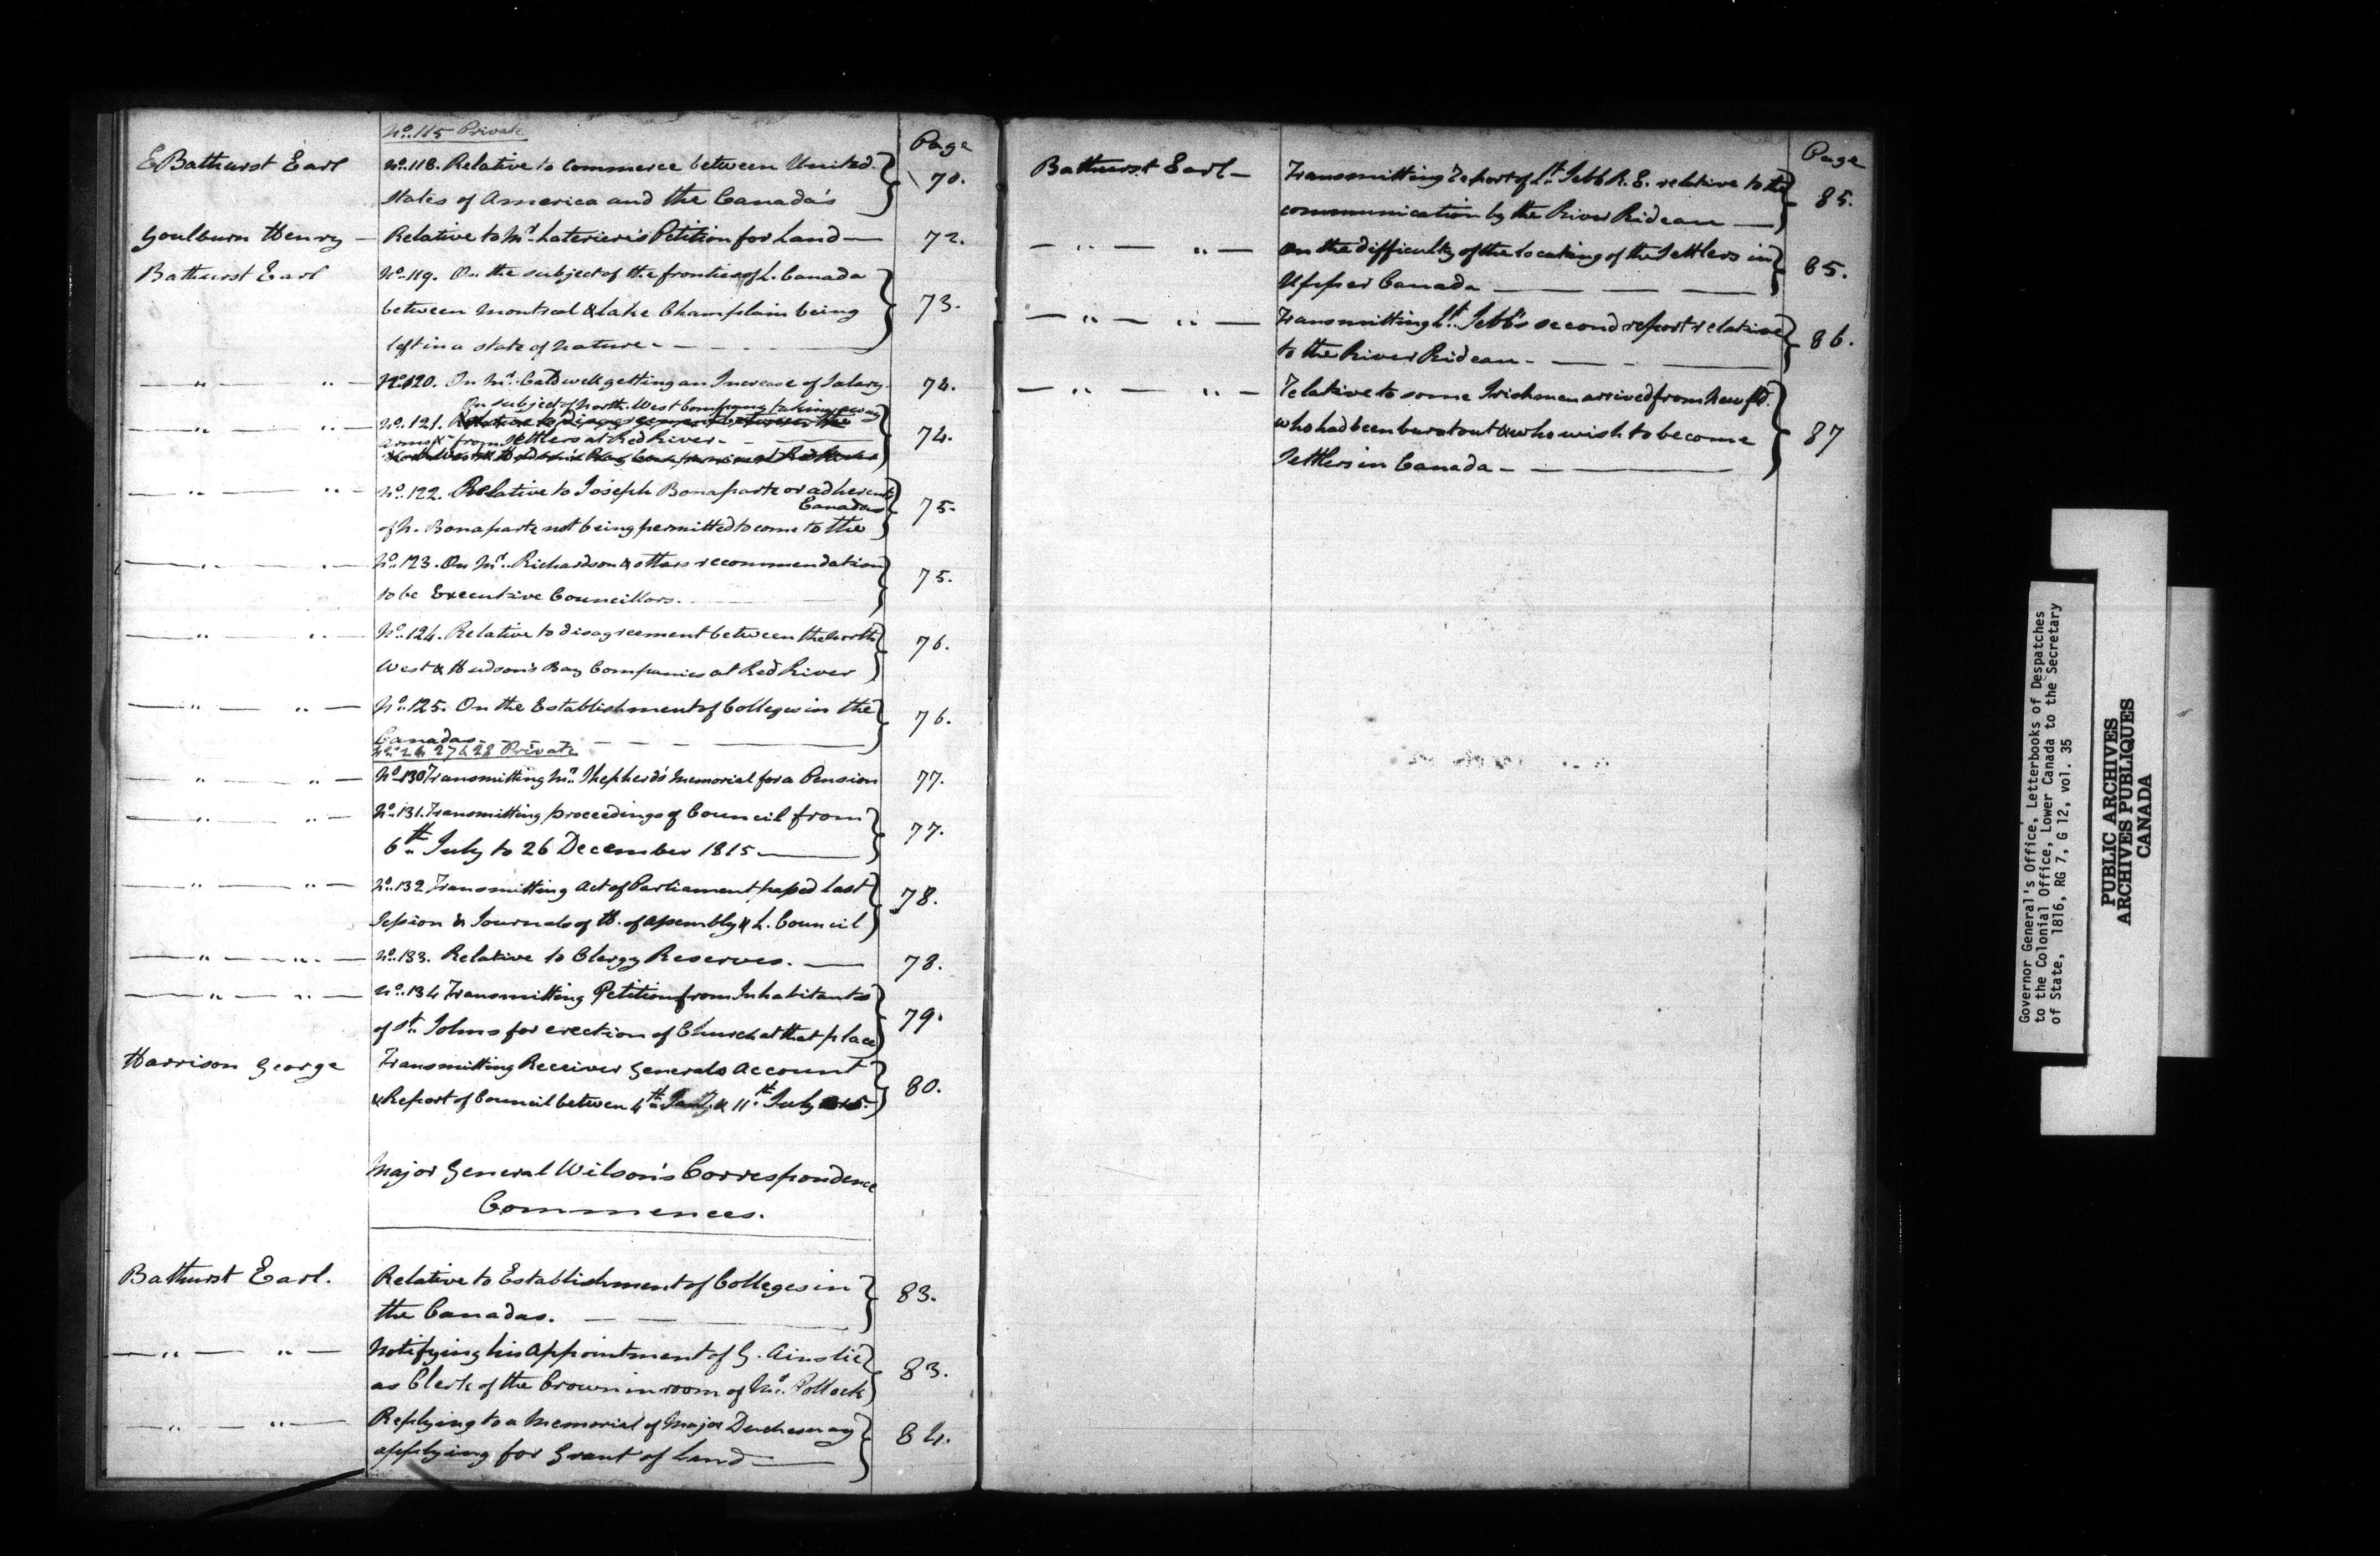 No. 115 Private
Page
E Bathurst Earl No. 118. Relative to Commerce between United 70.
States of America and the Canada's
Goulburn Henry — Relative to Mr. Laterieres Petition for Land — 72.
Bathurst Earl No. 119. On the subject of the frontier of L. Canada
between Montreal & Lake Champlain being 73.
left in a state of nature - —
— " — " — No. 120. On Mr. Caldwell getting an Increase of Salary. 74.
On subject of North West Company taking away
No. 121. Relative to disagreement between the
arms &c from Settlers at Red River - — 74.
North West & Hudson's Bay Companies at Red River
— " — " — No. 122. Relative to Joseph Bonaparte or adherents
Canadas 75.
of N. Bonaparte not being permitted to come to the
— " — " — No. 123. On Mr. Richardson & others recommendation
to be Executive Councillors. 75.
— " — " — No. 124. Relative to disagreement between the North
West & Hudson's Bay Companies at Red River 76.
— " — " — No. 125. On the Establishment of Colleges in the
Canadas - — 76.
27 & 28 Private
— " — " — No. 130 Transmitting Mr. Shepherd's Memorial for a Pension 77.
— " — " — No. 131. Transmitting proceedings of Council from
6th July to 26 December 1815 — 77.
— " — " — No. 132 Transmitting Act of Parliament passed last
Session & Journals of H. of Assembly & L. Council 78.
— " — " — No. 133. Relative to Clergy Reserves. — 78.
— " — " — No. 134 Transmitting Petition from Inhabitants
of St. Johns for erection of Church at that place 79.
Harrison George Transmitting Receiver Generals Account
& Report of Council betwen 4th Jany & 11th July 1815. 80.
Major General Wilson's Correspondence
Commences.
Bathurst Earl. Relative to Establishment of Colleges in
the Canadas. — 83.
— " — " — Notifying his Appointment of G. Ainslie
as Clerk of the Crown in room of Mr. Pollock 83.
— " — " — Replying to a Memorial of Major Duchesnay
applying for Grant of Land — 84.
Page
Bathurst Earl — Transmitting Report of Lt. Jebb R. E. relative to the
communication by the River Rideau — 85.
— " — " — On the difficulty of the locating of the Settlers in
Upper Canada — 85.
— " — " — Transmitting Lt. Jebb's second report relative
to the River Rideau - — 86.
— " — " — Relative to some Irishmen arrived from Newfd.
who had been burnt out & who wish to become 87
Settlers in Canada - —
Governor General's Office, Letterbooks of Despatches
to the Colonial Office, Lower Canada to the Secretary
of State, 1816, RG 7, G 12, vol. 35
PUBLIC ARCHIVES
ARCHIVES PUBLIQUES
CANADA